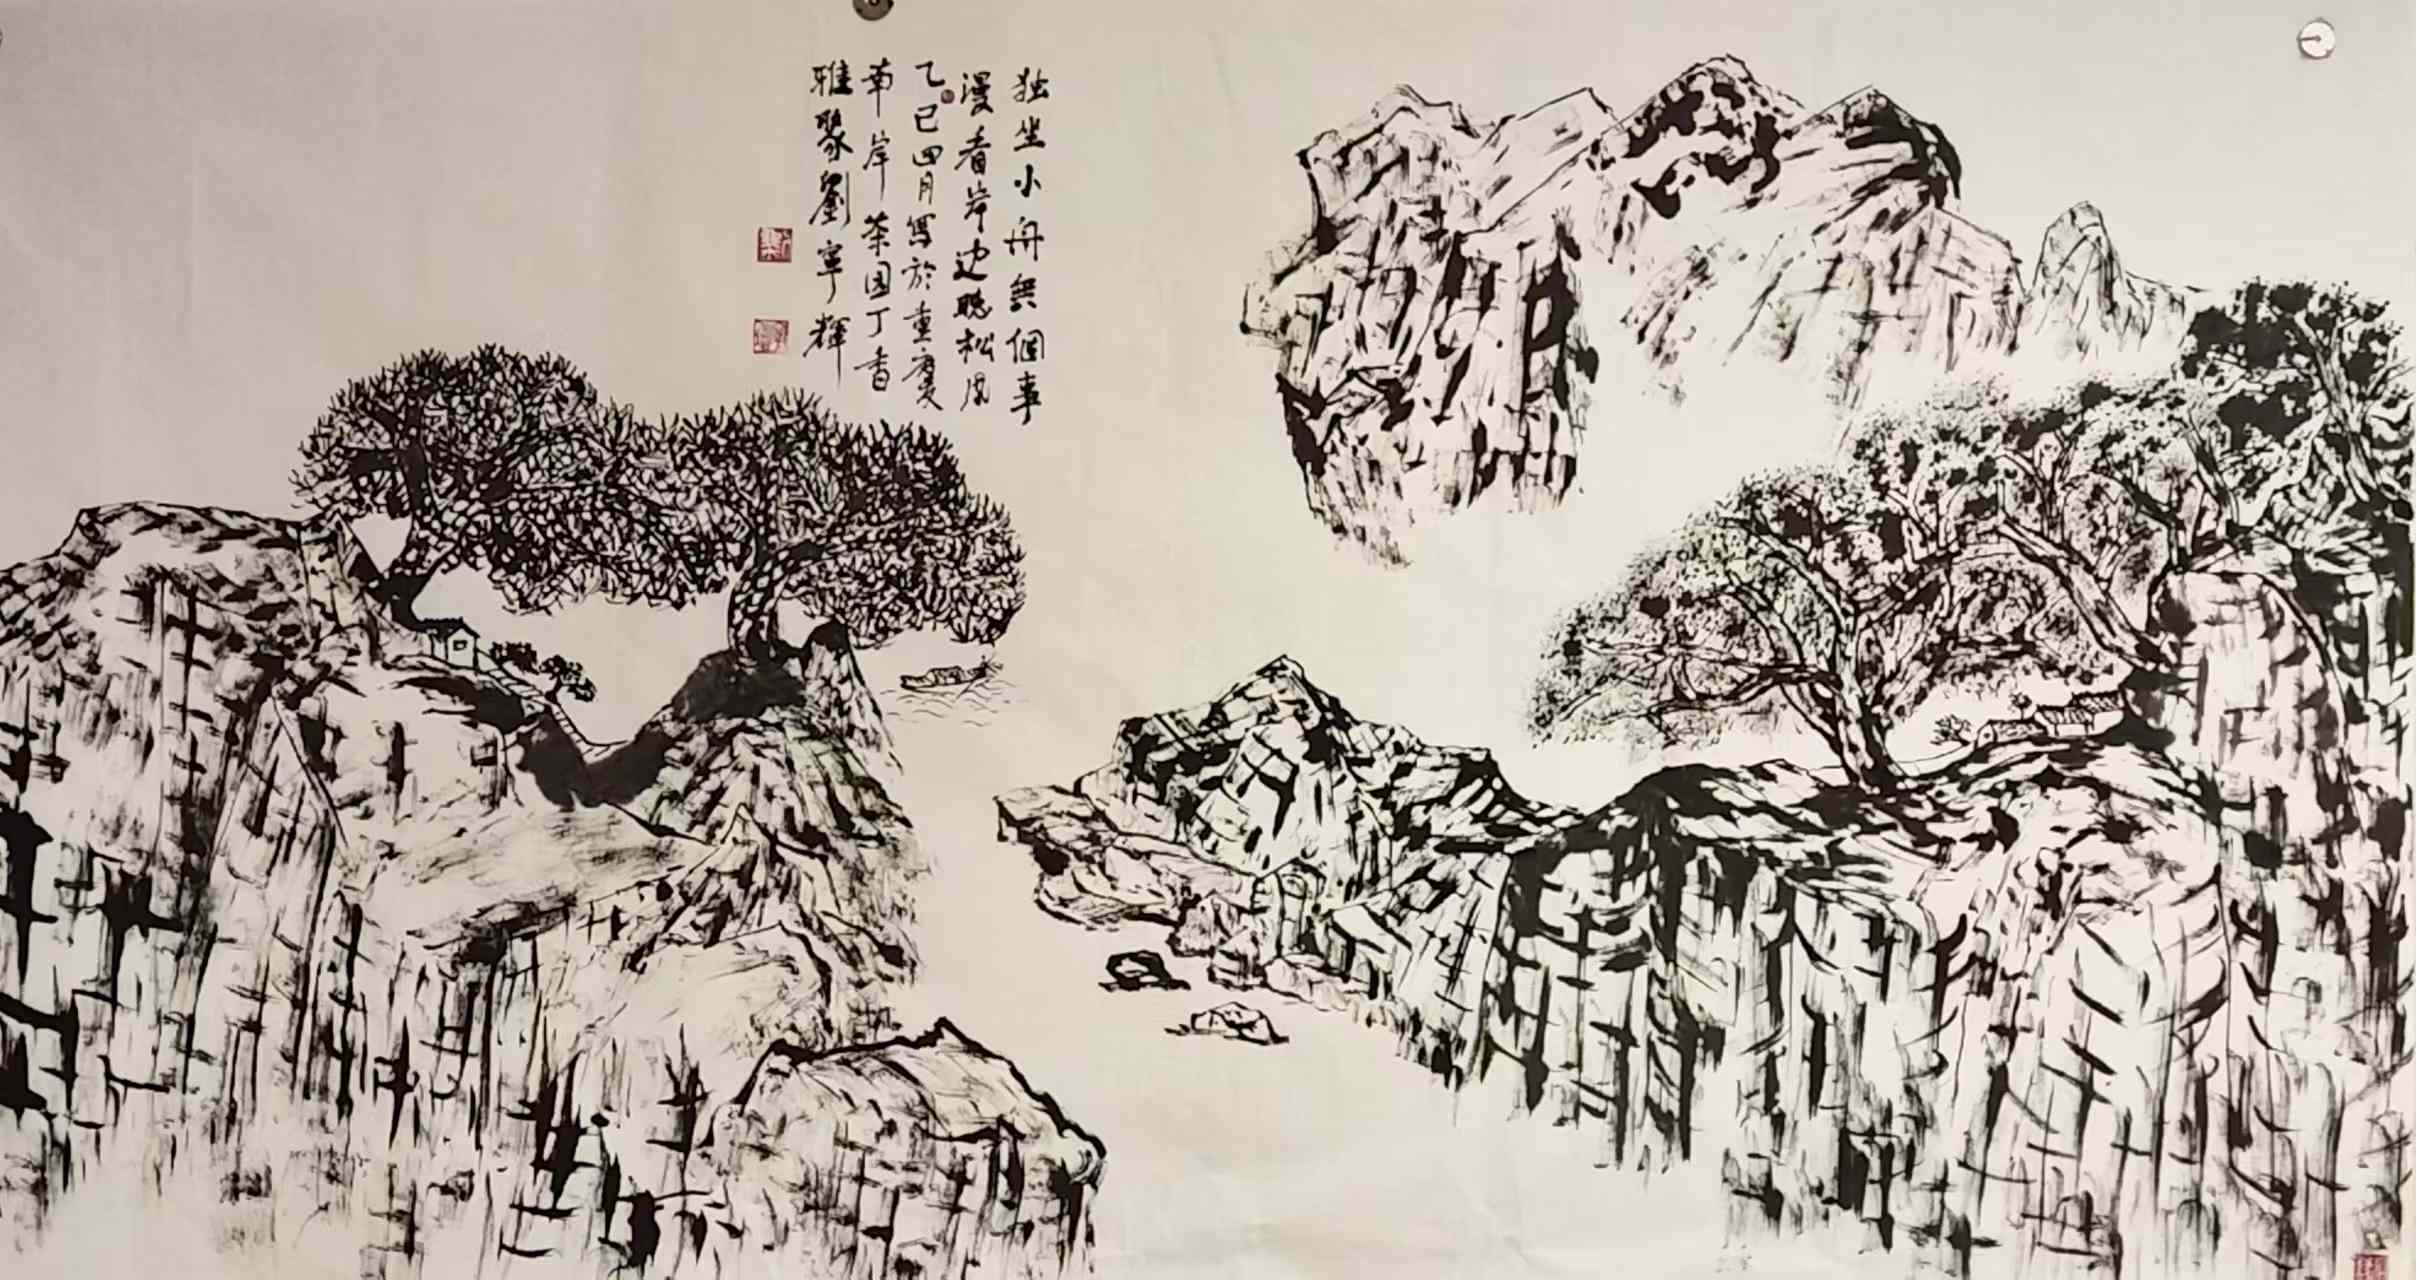 独坐小舟無個事
漫看岸边聴松风
乙巳四月写於重慶
南岸茶园丁香
雅聚劉寧輝